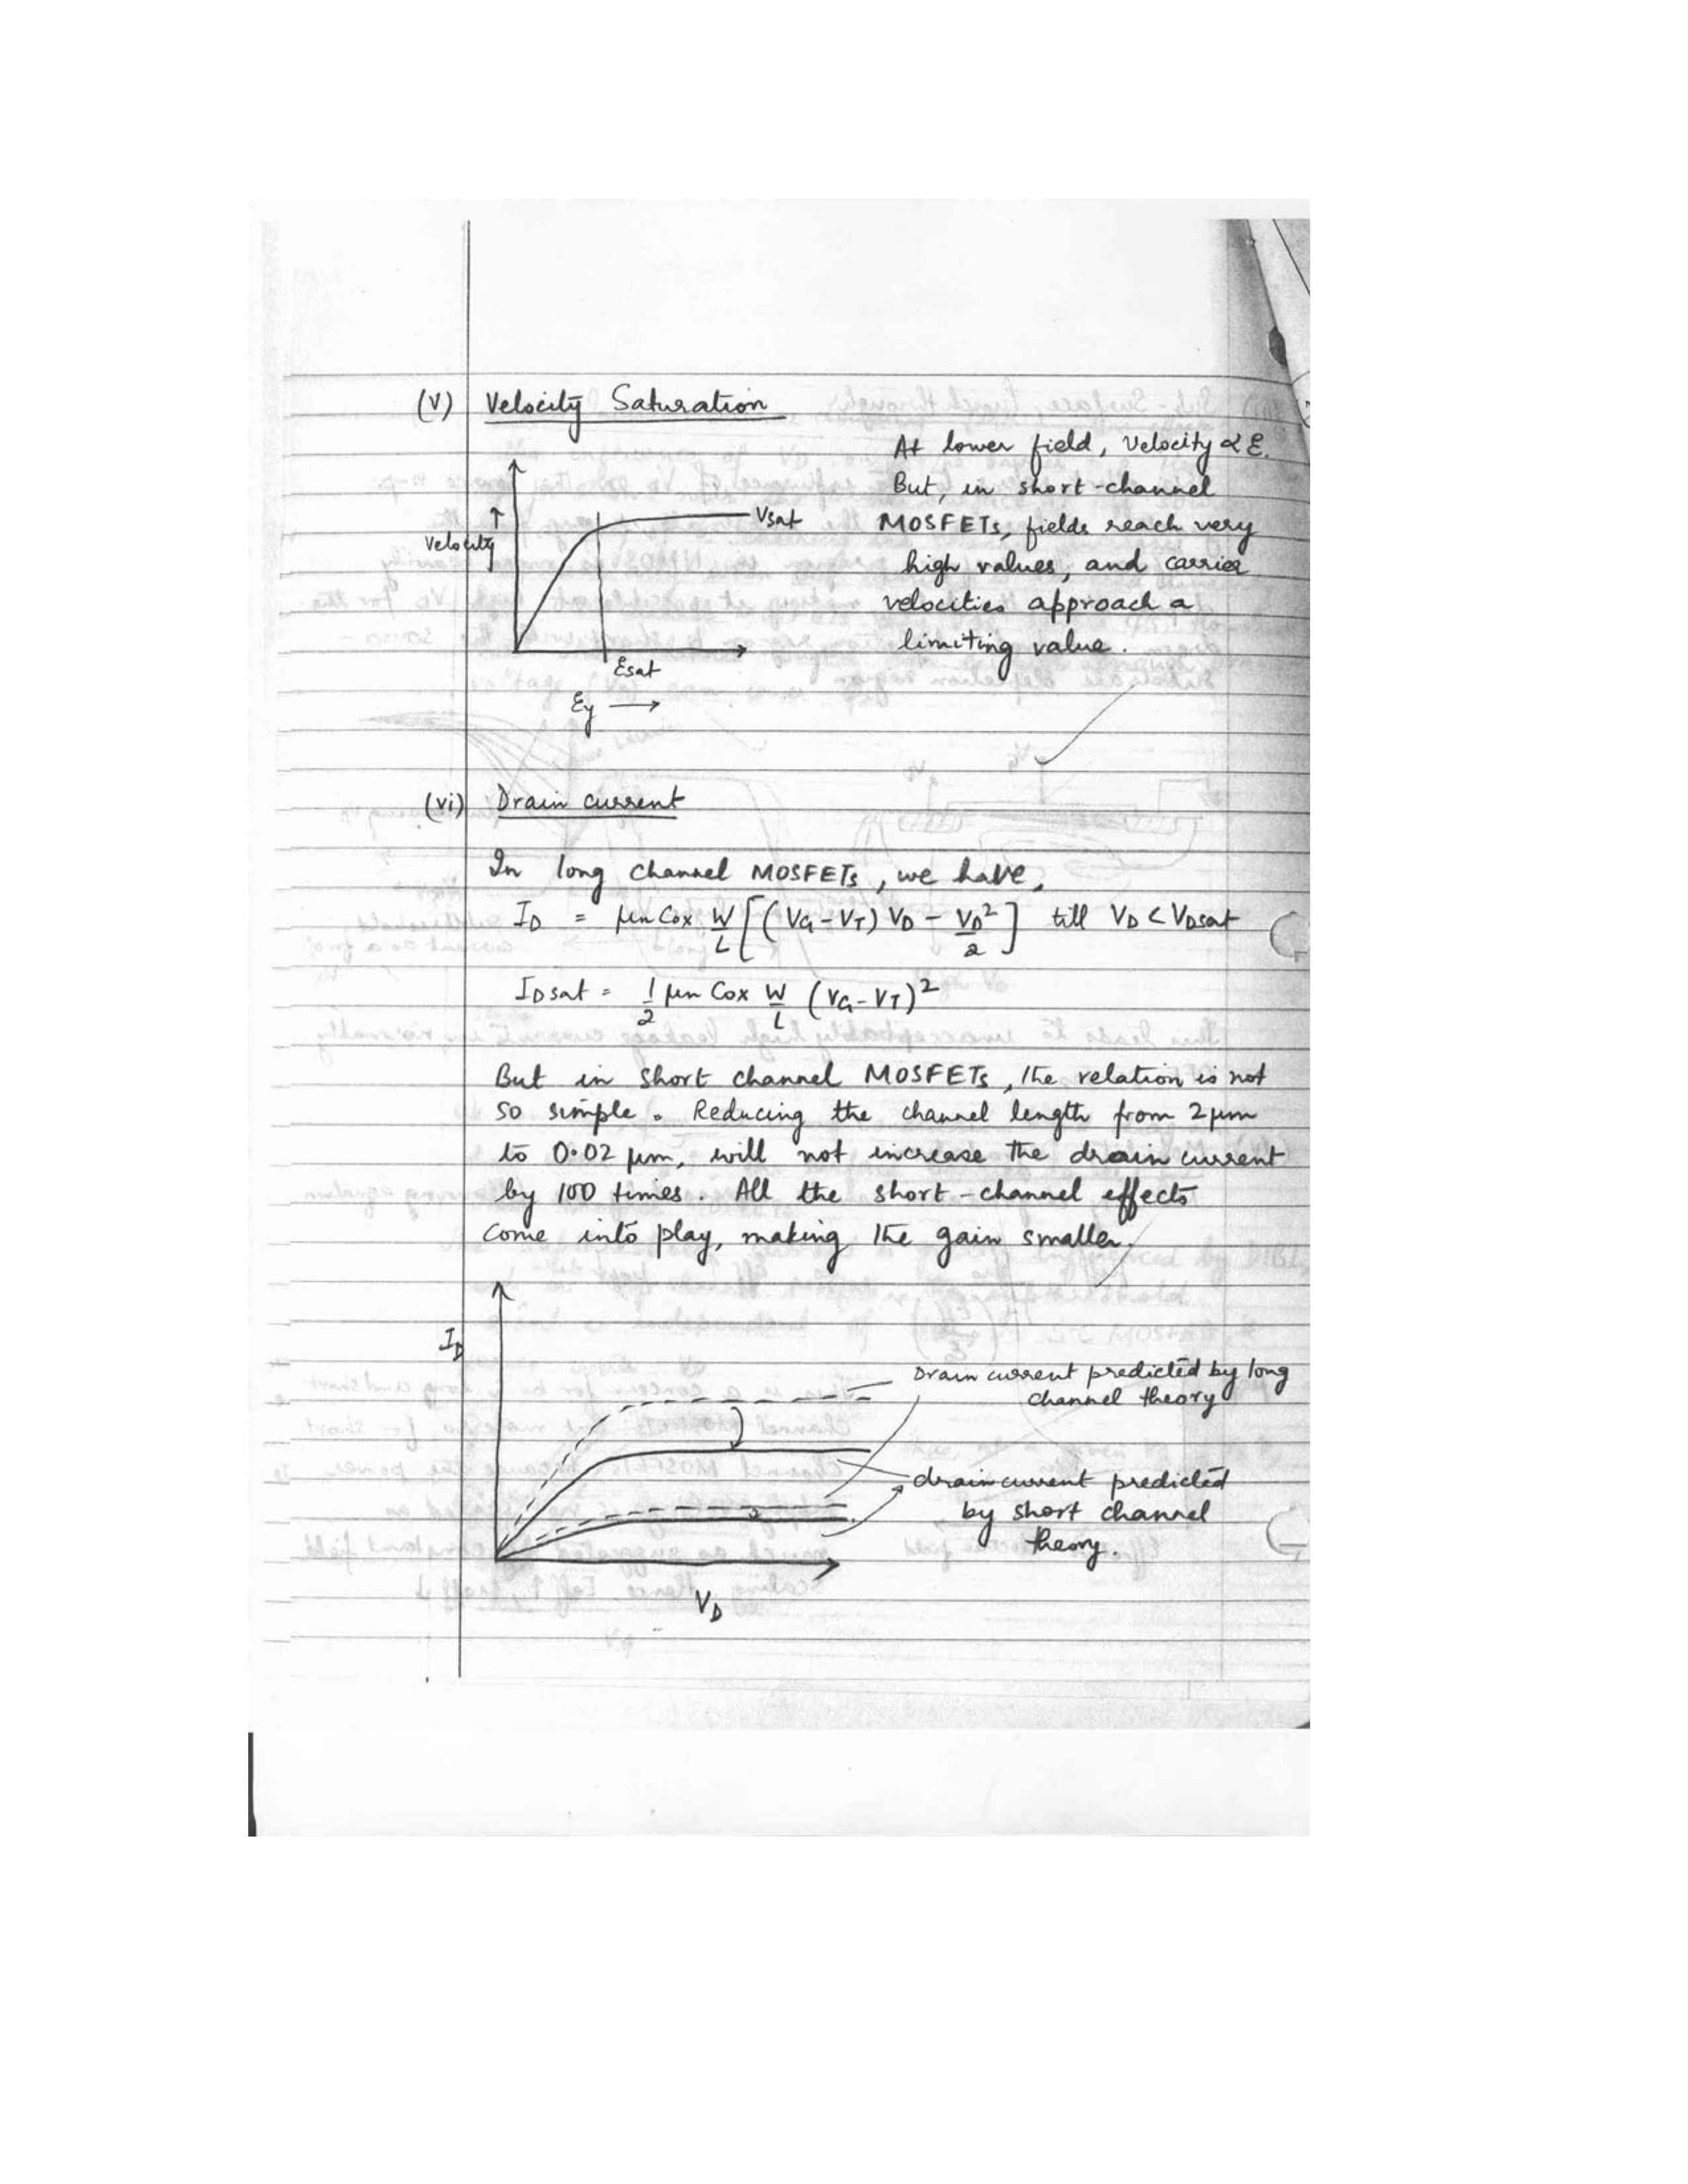 (V) Velocity Saturation
At lower field, velocity ∝ ℰ.
But, in short-channel
MOSFETs, fields reach very
high values, and carrier
velocities approach a
limiting value.
↑
Velocity
Vsat
ℰsat
ℰy →
(vi) Drain current
In long channel MOSFETs, we have,
ID = μn Cox W/L [(VG - VT) VD - VD²/2] till VD < VDsat
IDsat = 1/2 μn Cox W/L (VG - VT)²
But in short channel MOSFETs, the relation is not
so simple. Reducing the channel length from 2μm
to 0.02 μm, will not increase the drain current
by 100 times. All the short-channel effects
come into play, making the gain smaller.
ID
Drain current predicted by long
channel theory
drain current predicted
by short channel
theory.
VD